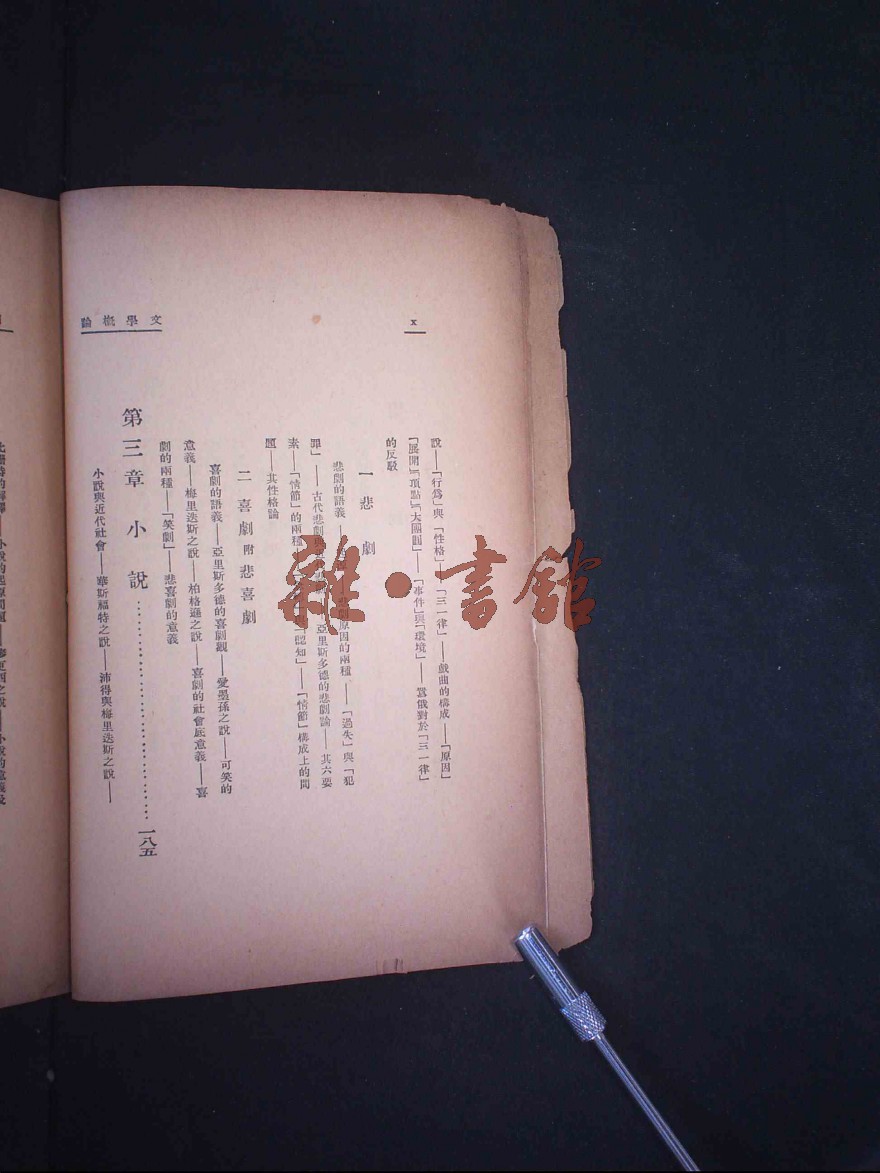 x
文學概論
說——「行爲」與「性格」——「三一律」——戲曲的構成——「原因」
「展開」「頂點」「大團圓」——「事件」與「環境」——囂俄對於「三一律」
的反駁
一 悲劇
悲劇的語義——悲劇原因的兩種——「過失」與「犯
罪」——古代悲劇與——亞里斯多德的悲劇論——其六要
素——「情節」的兩種——「認知」——「情節」構成上的問
題——其性格論
二 喜劇附悲喜劇
喜劇的語義——亞里斯多德的喜劇觀——愛墨孫之說——可笑的
意義——梅里迭斯之說——柏格遜之說——喜劇的社會底意義——喜
劇的兩種——「笑劇」——悲喜劇的意義
第三章 小說……………………一八五
小說與近代社會——華斯福特之說——沛得與梅里迭斯之說——
之說——小說的起原問題——之說——小說的意義及
雜·書館